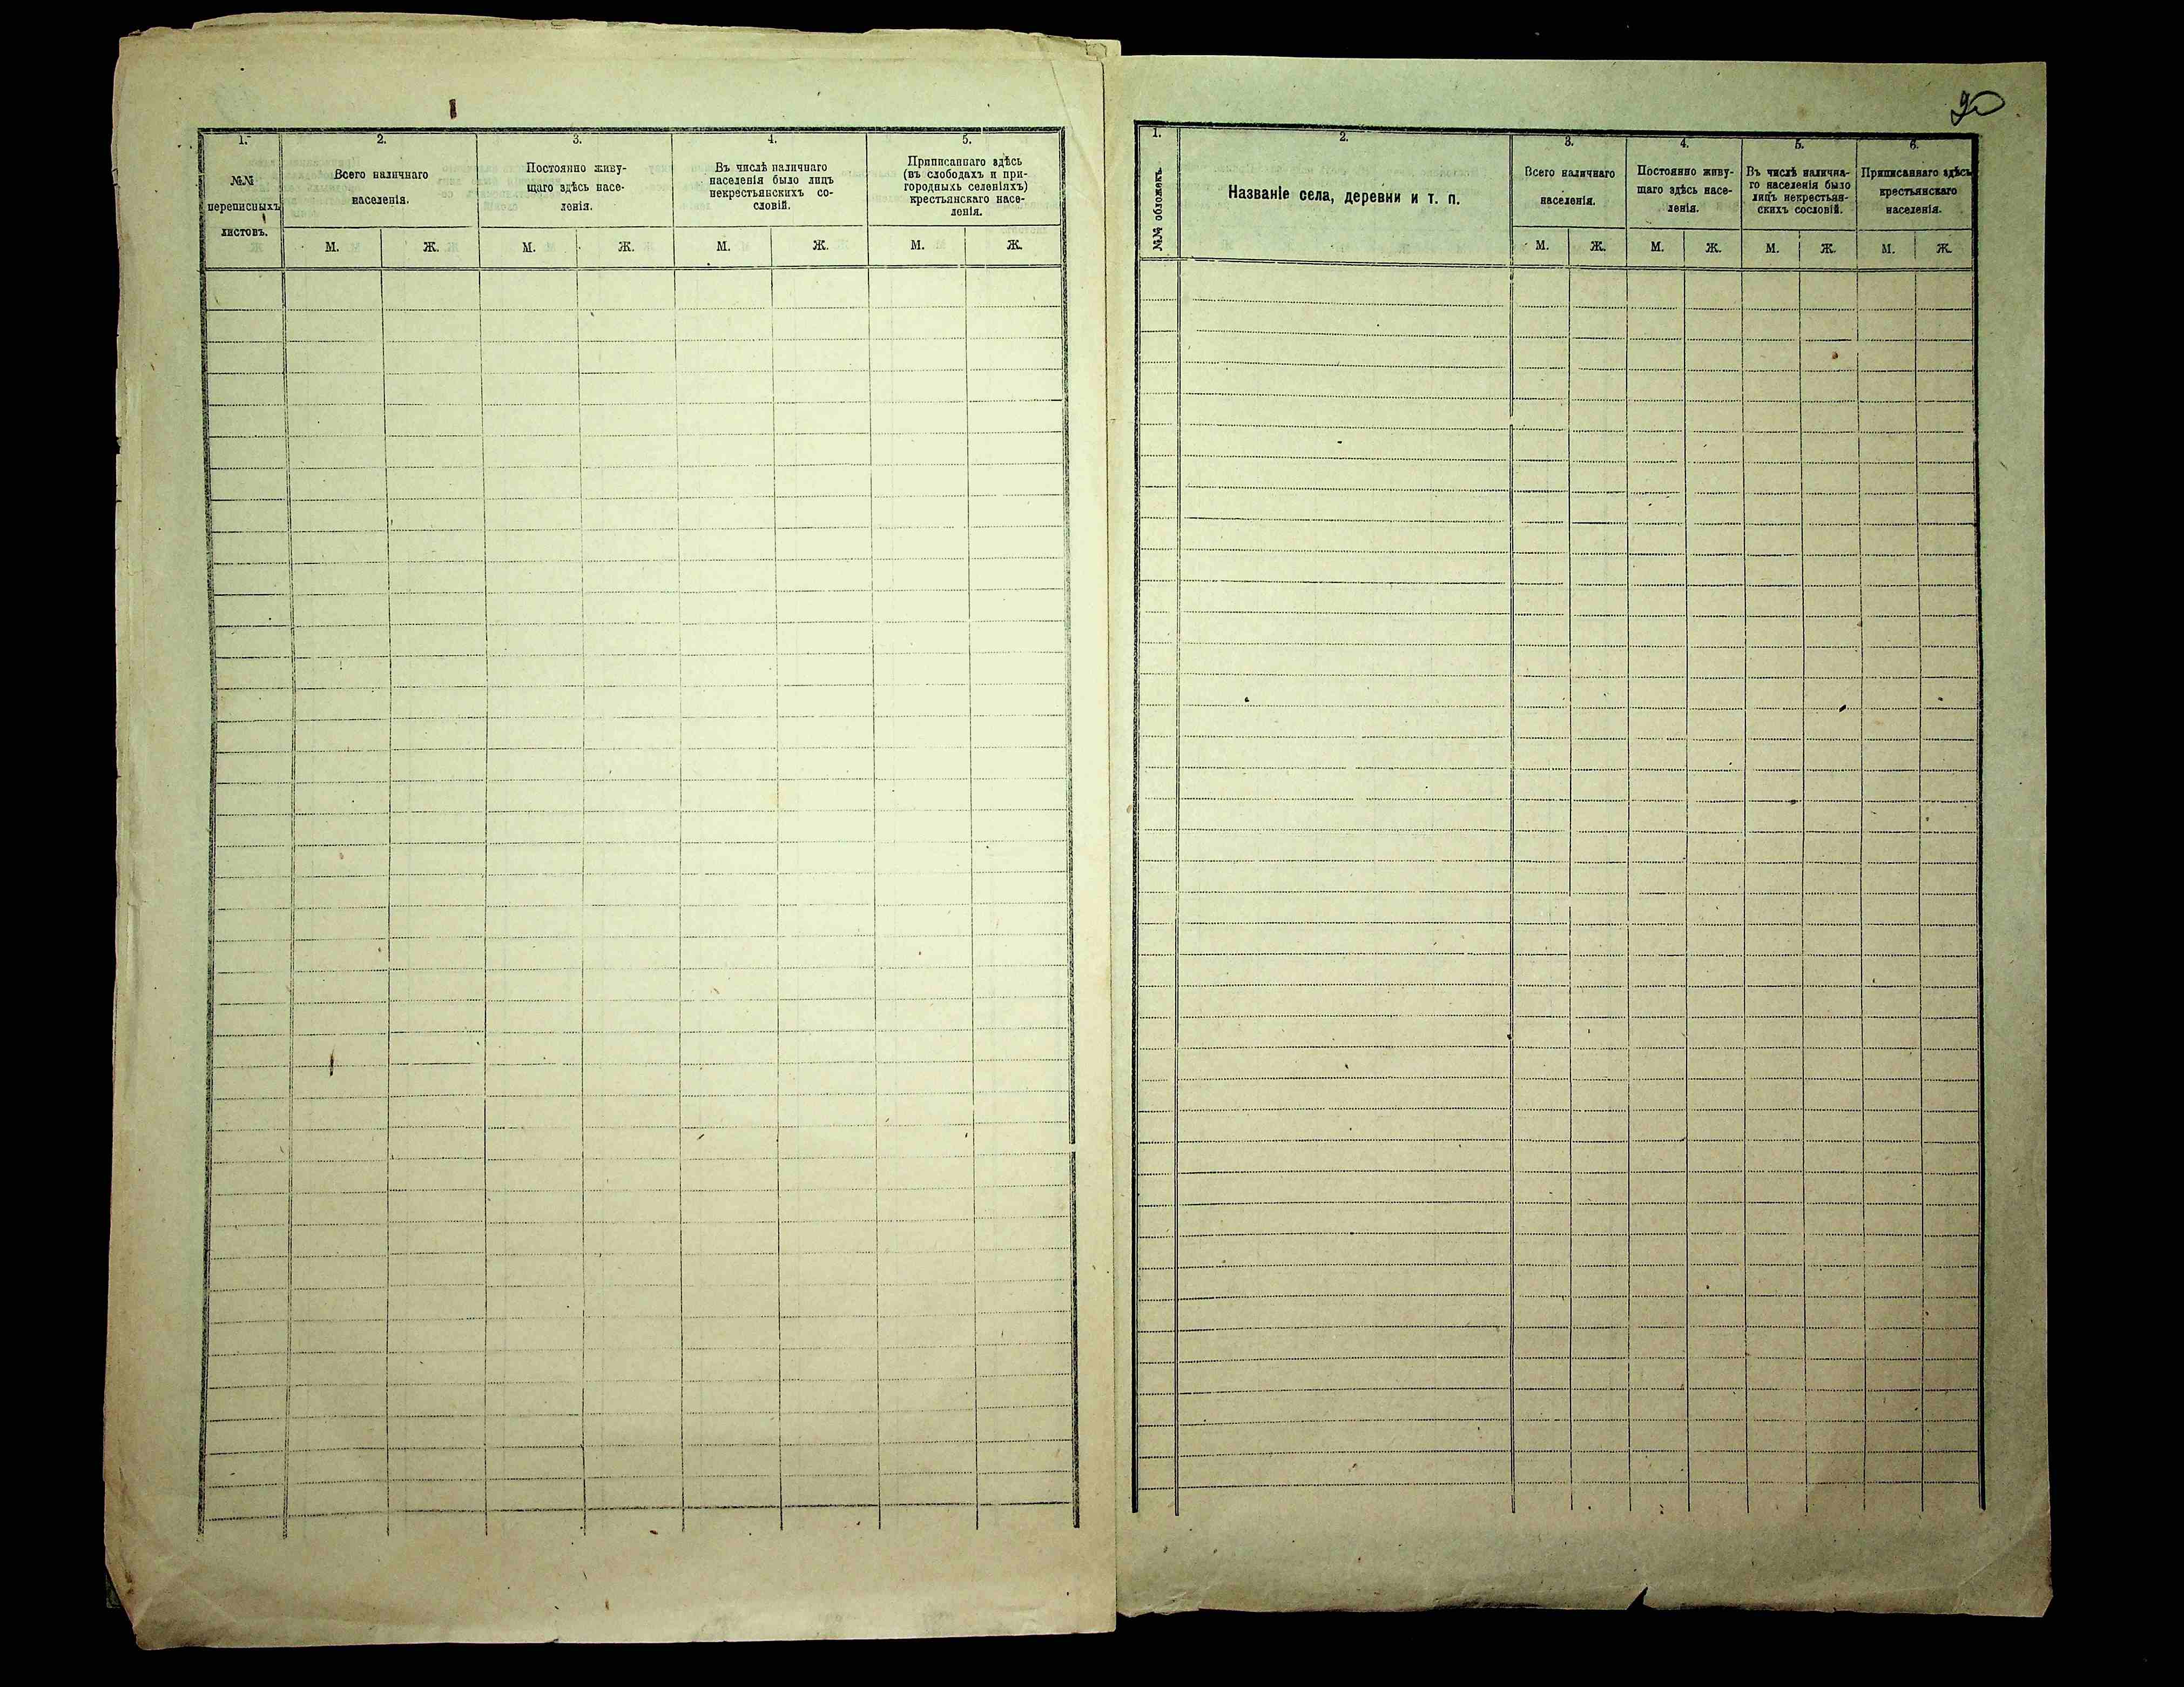 1.
2.
3.
4.
5.
№№
переписныхъ
листовъ.
Всего наличнаго
населенія.
Постоянно живу-
щаго здѣсь насе-
ленія.
Въ числѣ наличнаго
населенія было лицъ
некрестьянскихъ со-
словій.
Приписаннаго здѣсь
(въ слободахъ и при-
городныхъ селеніяхъ)
крестьянскаго насе-
ленія.
М. Ж. М. Ж. М. Ж. М. Ж.
20
1.
2.
3.
4.
5.
6.
№№ обложекъ.
Названіе села, деревни и т. п.
Всего наличнаго
населенія.
Постоянно живу-
щаго здѣсь насе-
ленія.
Въ числѣ налична-
го населенія было
лицъ некрестьян-
скихъ сословій.
Приписаннаго здѣсь
крестьянскаго
населенія.
М. Ж. М. Ж. М. Ж. М. Ж.